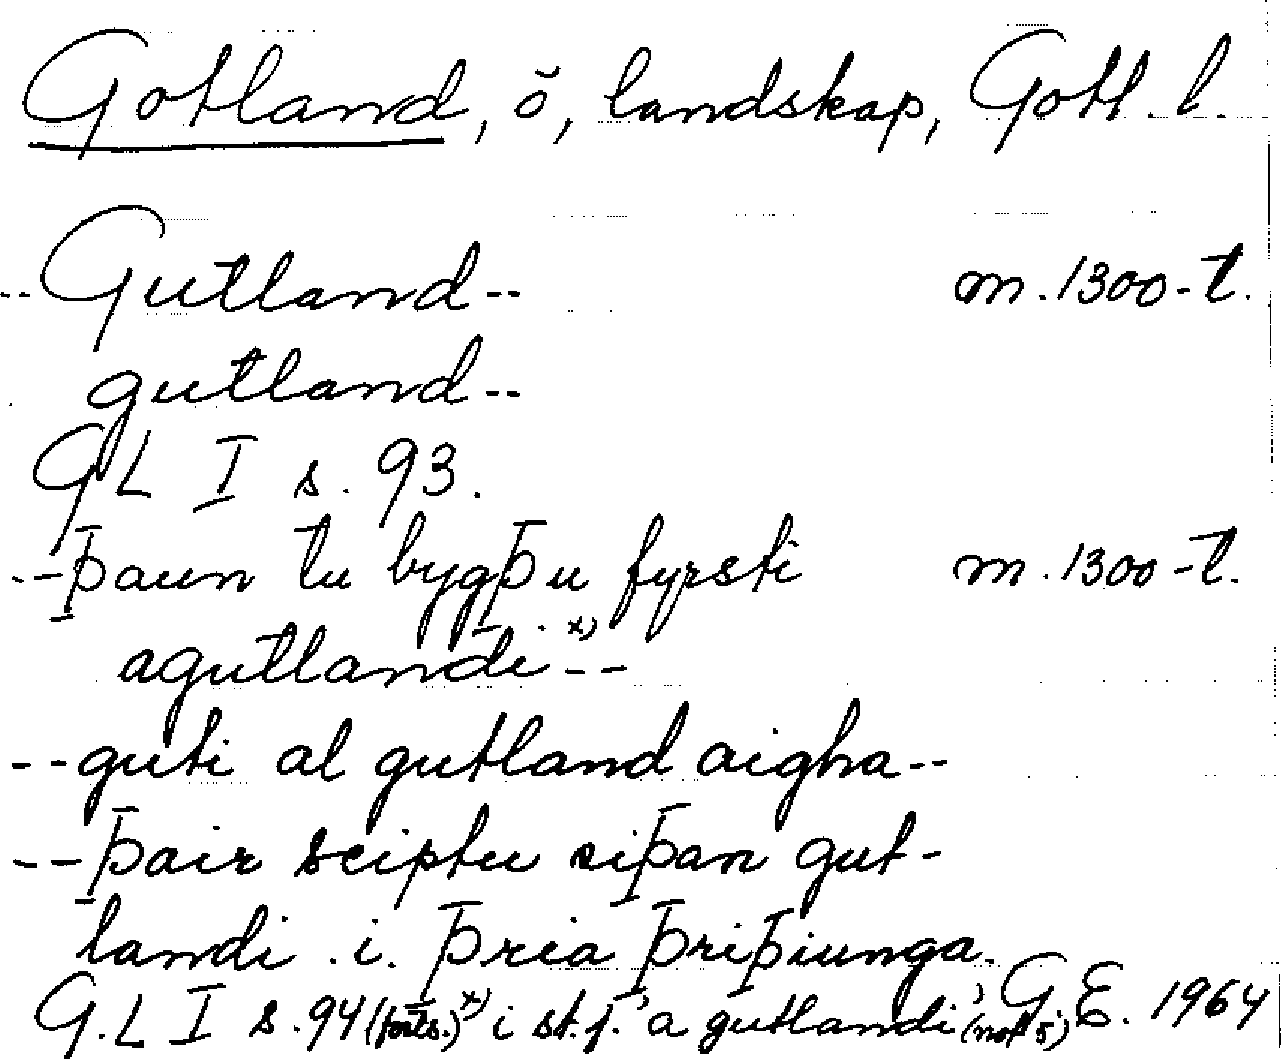 Gotland, ö, landskap, Gotl. l.
--Gutland-- m. 1300-t.
gutland--
GL I s. 93.
--þaun tu bygþu fyrsti m. 1300-t.
agutlandi x) --
--guti al gutland aigha--
--þair sciptu siþan gut-
landi . i. þria þriþiunga.
G.L I s. 94 (forts.) x) i st. f. 'a gutlandi' (not 5) G.E. 1964